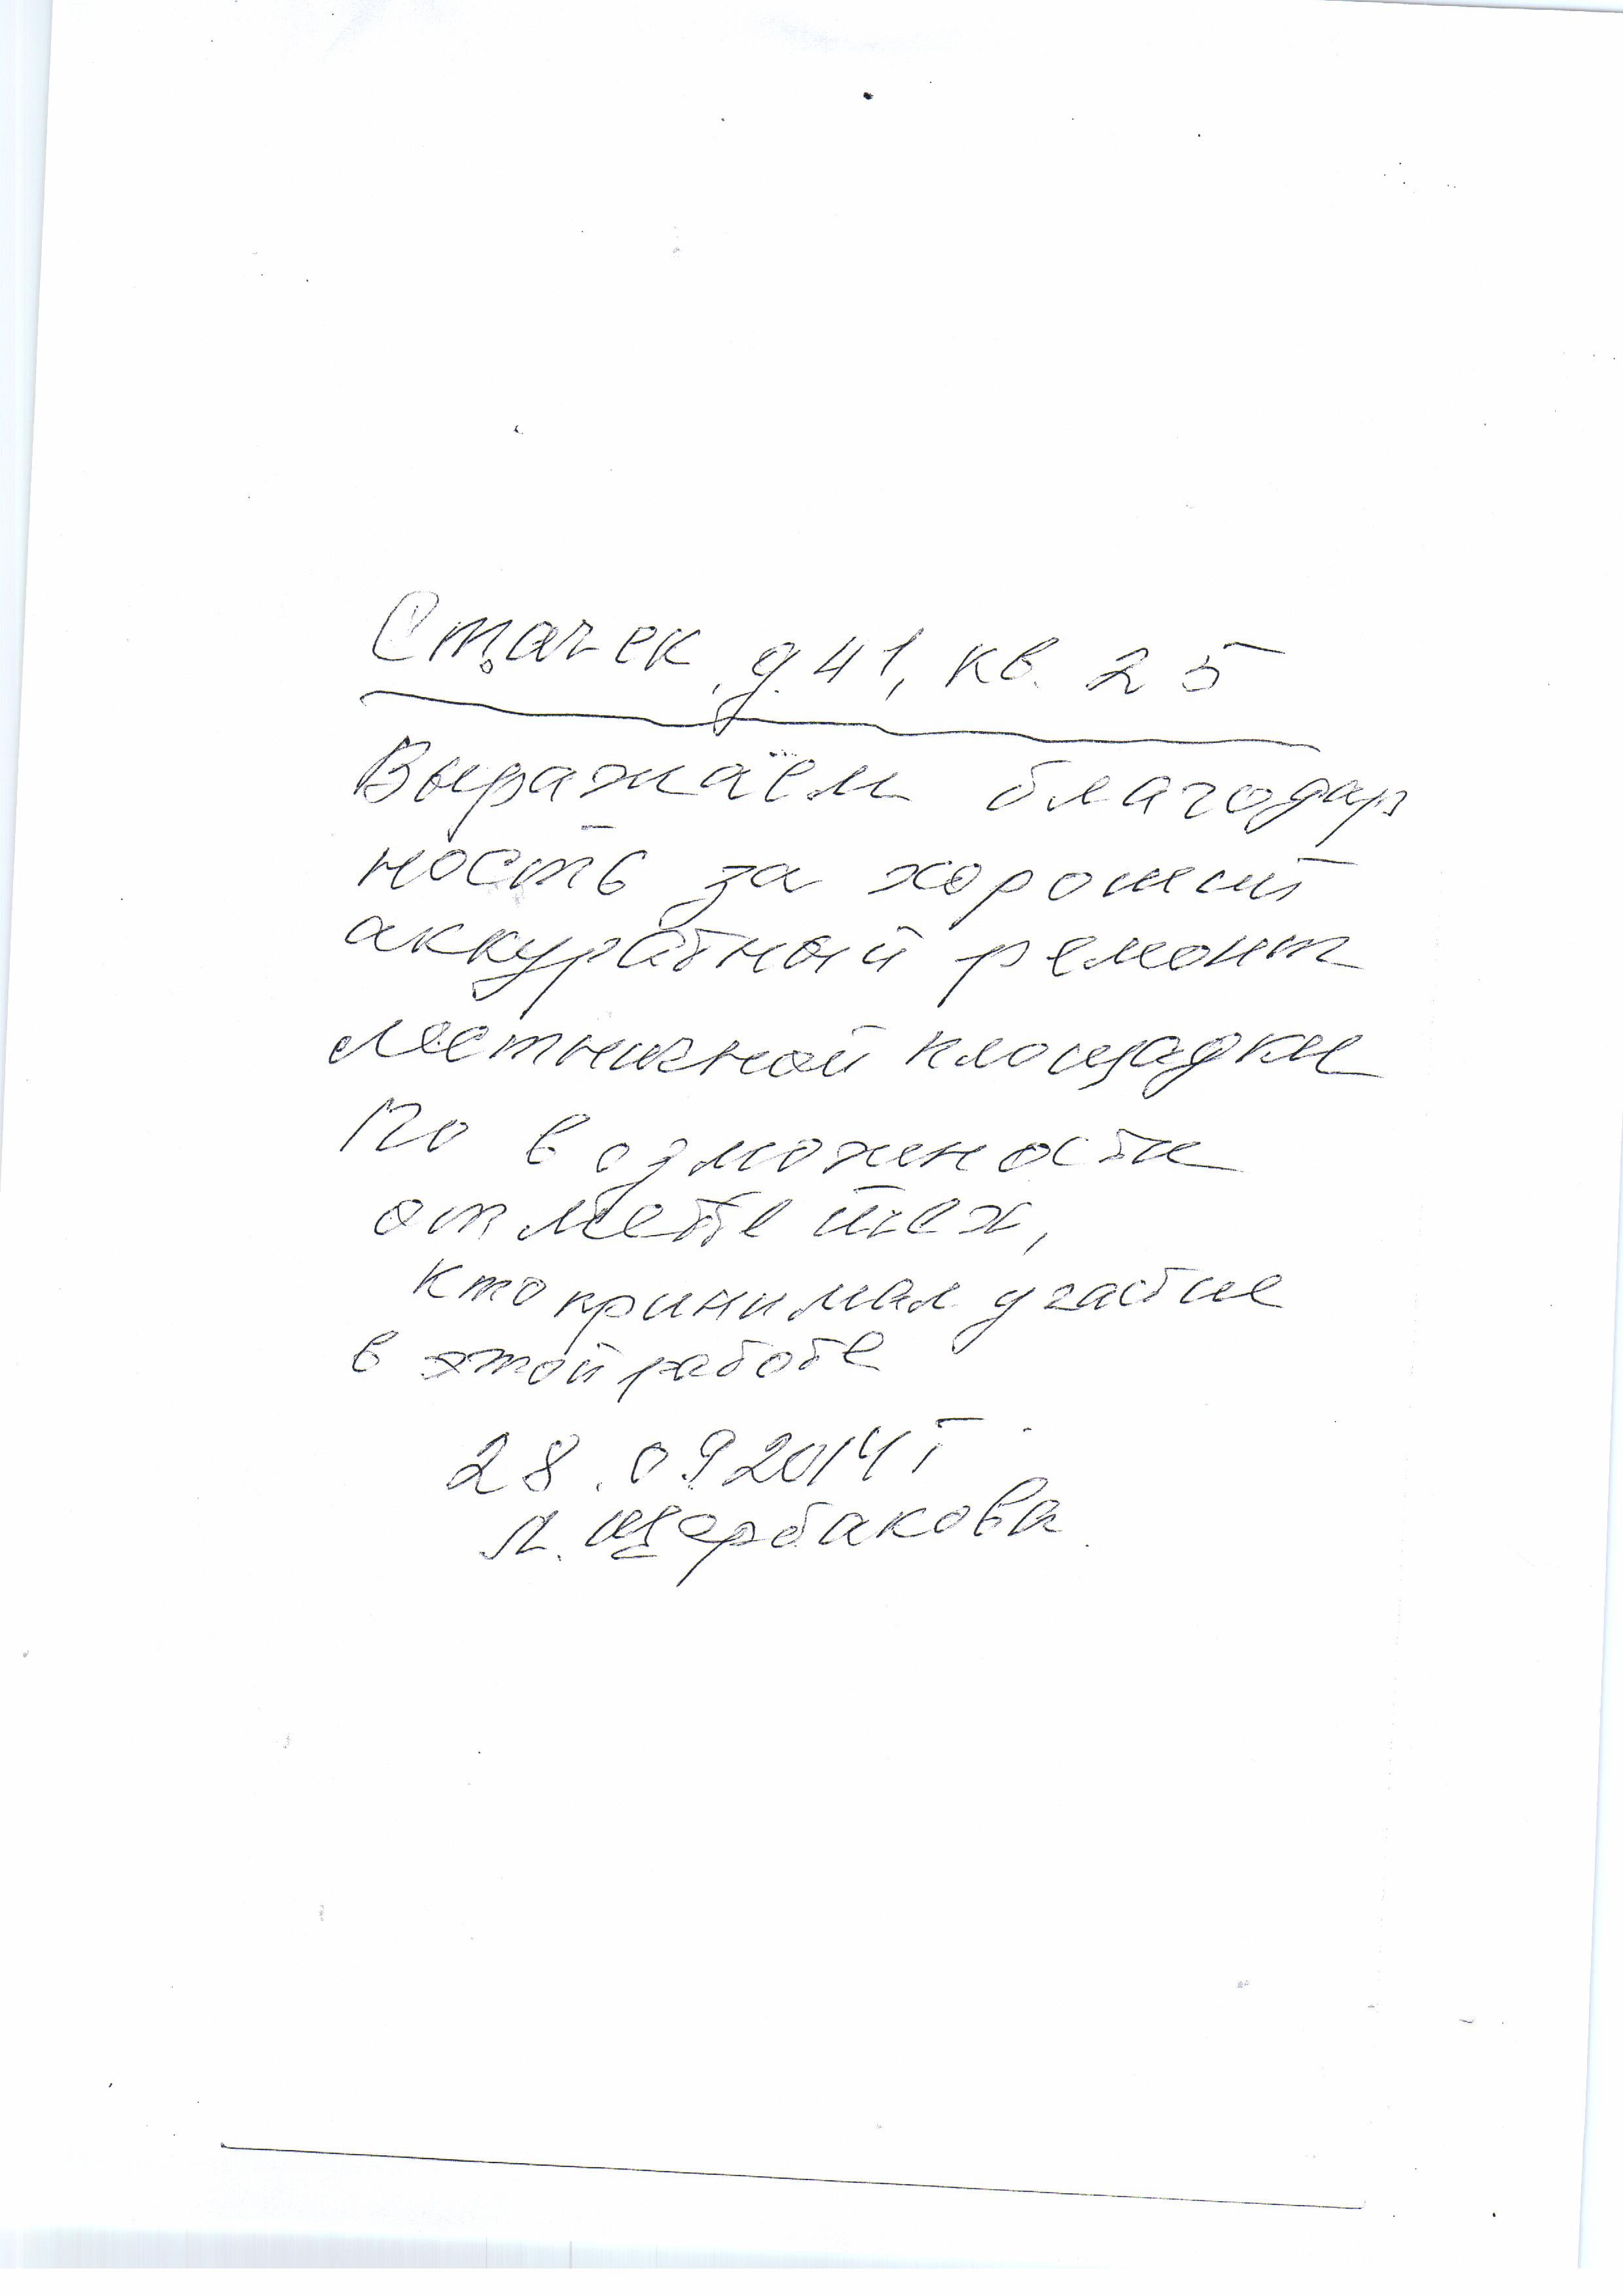 Стачек, д. 41, кв. 25
Выражаем благодар
ность за хороший
аккуратный ремонт
лестничной площадки
По возможности
отметьте тех,
кто принимал участие
в этой работе
28.09.2014 г
Л. Щербакова